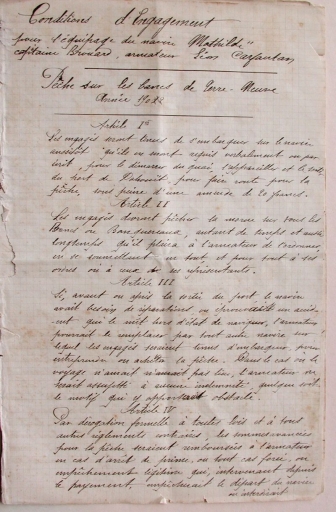 Conditions d'Engagement
pour l'équipage du navire "Mathilde"
capitaine Brouard, armateur Léon Carfantan
Pêche sur les bancs de Terre-Neuve
Année 1922
Article 1er
Les engagés seront tenus de s'embarquer sur le navire
aussitôt qu'ils en seront requis verbalement ou par
écrit, pour le démarrer du quai, l'appareiller et le sortir
du port de Dahouët, pour faire route pour la
pêche, sous peine d'une amende de 20 francs.
Article II
Les engagés devront pêcher la morue sur tous les
Bancs ou Banquereaux, autant de temps et aussi
longtemps qu'il plaira à l'armateur de l'ordonner,
en se soumettant en tout et pour tout à ses
ordres ou à ceux de ses représentants.
Article III
Si, avant ou après la sortie du port, le navire
avait besoin de réparations ou éprouvait un accid-
ent qui le mît hors d'état de naviguer, l'armateur
pourrait le remplacer par tout autre navire sur
lequel les engagés seraient tenus d'embarquer pour
entreprendre ou achever la pêche. Dans le cas où le
voyage n'aurait n'aurait pas lieu, l'armateur ne
serait assujetti à aucune indemnité, quelque soit
le motif qui y apportait obstacle.
Article IV
Par dérogation formelle à toutes lois et à tous
autres règlements contraires, les
pour la pêche seraient remboursées à l'armateur
en cas d'arrêt de prince, ou tout cas forcé, ou
empêchement légitime qui, intervenant depuis
le payement, empêcherait le départ du navire